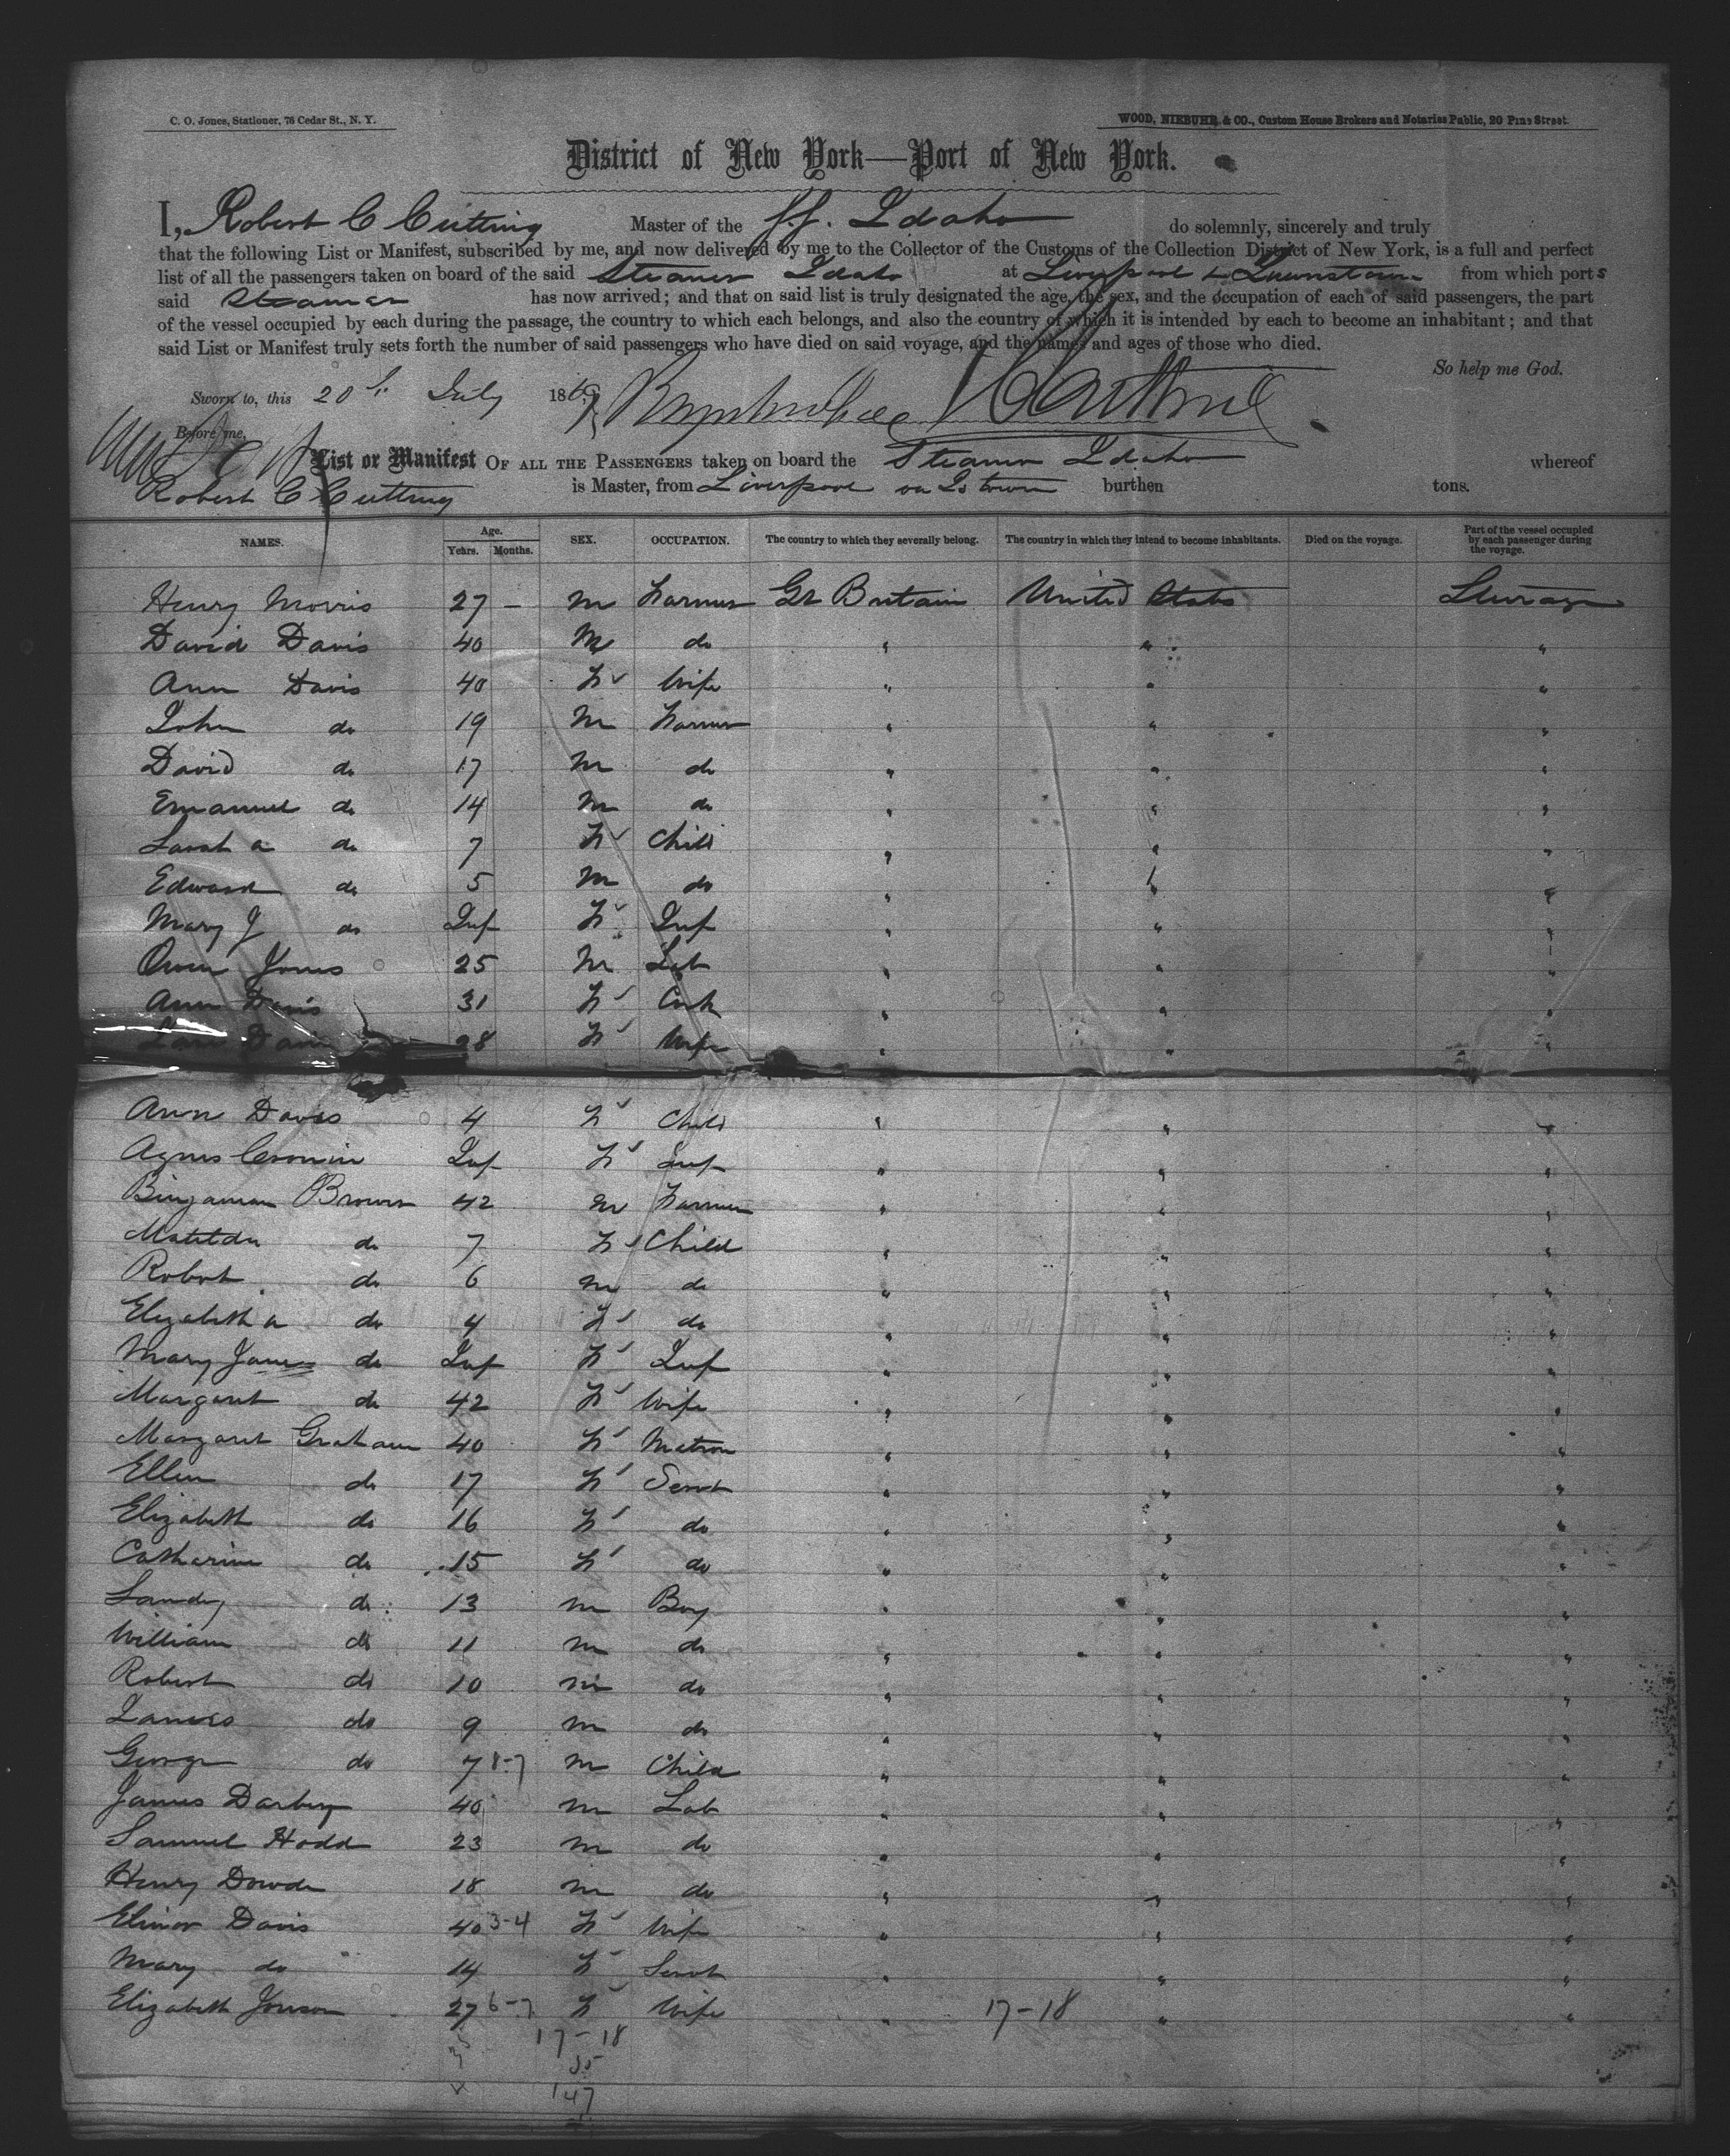 C. O. Jones, Stationer, 76 Cedar St., N. Y.
WOOD, NIEBUHR & CO., Custom House Brokers and Notaries Public, 20 Pine Street.
District of New York—Port of New York.
I, Robert C Cutting Master of the S.S. Idaho do solemnly, sincerely and truly
that the following List or Manifest, subscribed by me, and now delivered by me to the Collector of the Customs of the Collection District of New York, is a full and perfect
list of all the passengers taken on board of the said Steamer Idaho at Liverpool & Queenstown from which ports
said Steamer has now arrived; and that on said list is truly designated the age, the sex, and the occupation of each of said passengers, the part
of the vessel occupied by each during the passage, the country to which each belongs, and also the country of which it is intended by each to become an inhabitant; and that
said List or Manifest truly sets forth the number of said passengers who have died on said voyage, and the names and ages of those who died.
So help me God.
Sworn to, this 20th July 1869
Before me,
List or Manifest OF ALL THE PASSENGERS taken on board the Steamer Idaho whereof
Robert C Cutting is Master, from Liverpool via Qs town burthen tons.
NAMES. Age. Yehrs. Months. SEX. OCCUPATION. The country to which they severally belong. The country in which they intend to become inhabitants. Died on the voyage. Part of the vessel occupied by each passenger during the voyage.
Henry Morris 27 – m Farmer Gt Britain United States Steerage
David Davis 40 M do " " "
Ann Davis 40 F Wife " " "
John do 19 m Farmer " " "
David do 17 m do " " "
Emanuel do 14 m do " " "
Sarah a do 7 F Child " " "
Edward do 5 m do " " "
Mary J do Inf F Inf " " "
Owen Jones 25 M Lab " " "
Ann Davis 31 F Cook " " "
Davis 28 F Wife " " "
Ann Davis 4 F Child " " "
Agnes Cronin Inf F Inf " " "
Binjaman Brown 42 m Farmer " " "
Matilda do 7 F Child " " "
Robert do 6 m do " " "
Elizabeth a do 4 F do " " "
Mary Jane do Inf F Inf " " "
Margaret do 42 F Wife " " "
Margaret Graham 40 F Matron " " "
Ellen do 17 F Servt " " "
Elizabeth do 16 F do " " "
Catharine do 15 F do " " "
Sandy do 13 m Boy " " "
William do 11 m do " " "
Robert do 10 m do " " "
James do 9 m do " " "
George do 7 8-7 m Child " " "
James Darby 40 m Lab " " "
Samuel Hodd 23 m do " " "
Henry Dowde 18 m do " " "
Elinor Davis 40 3-4 F Wife " " "
Mary do 14 F Servt " " "
Elizabeth Jonson 27 6-7 F Wife " 17-18 " "
17-18
35
147